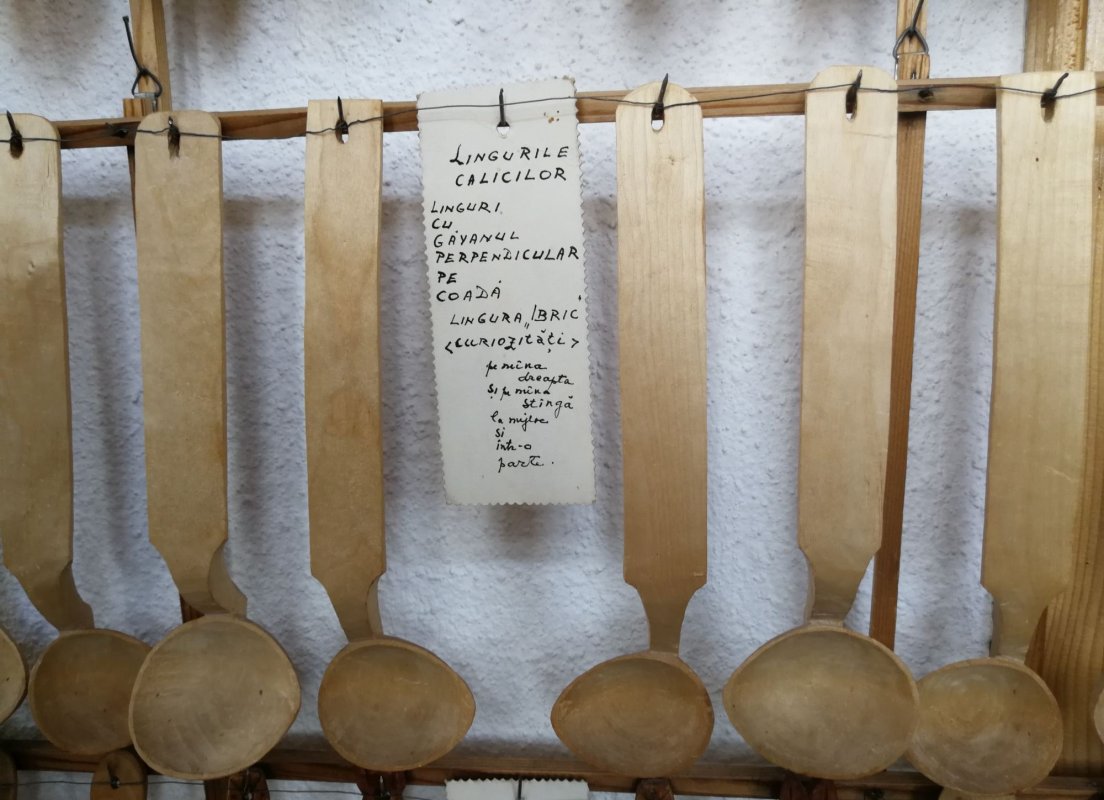 LINGURILE
CALICILOR
LINGURI
CU
GĂVANUL
PERPENDICULAR
PE
COADĂ
LINGURA „IBRIC"
<CURIOZITĂȚI>
pe mîna
dreapta
și pe mîna
stîngă
la mijloc
și
într-o
parte.